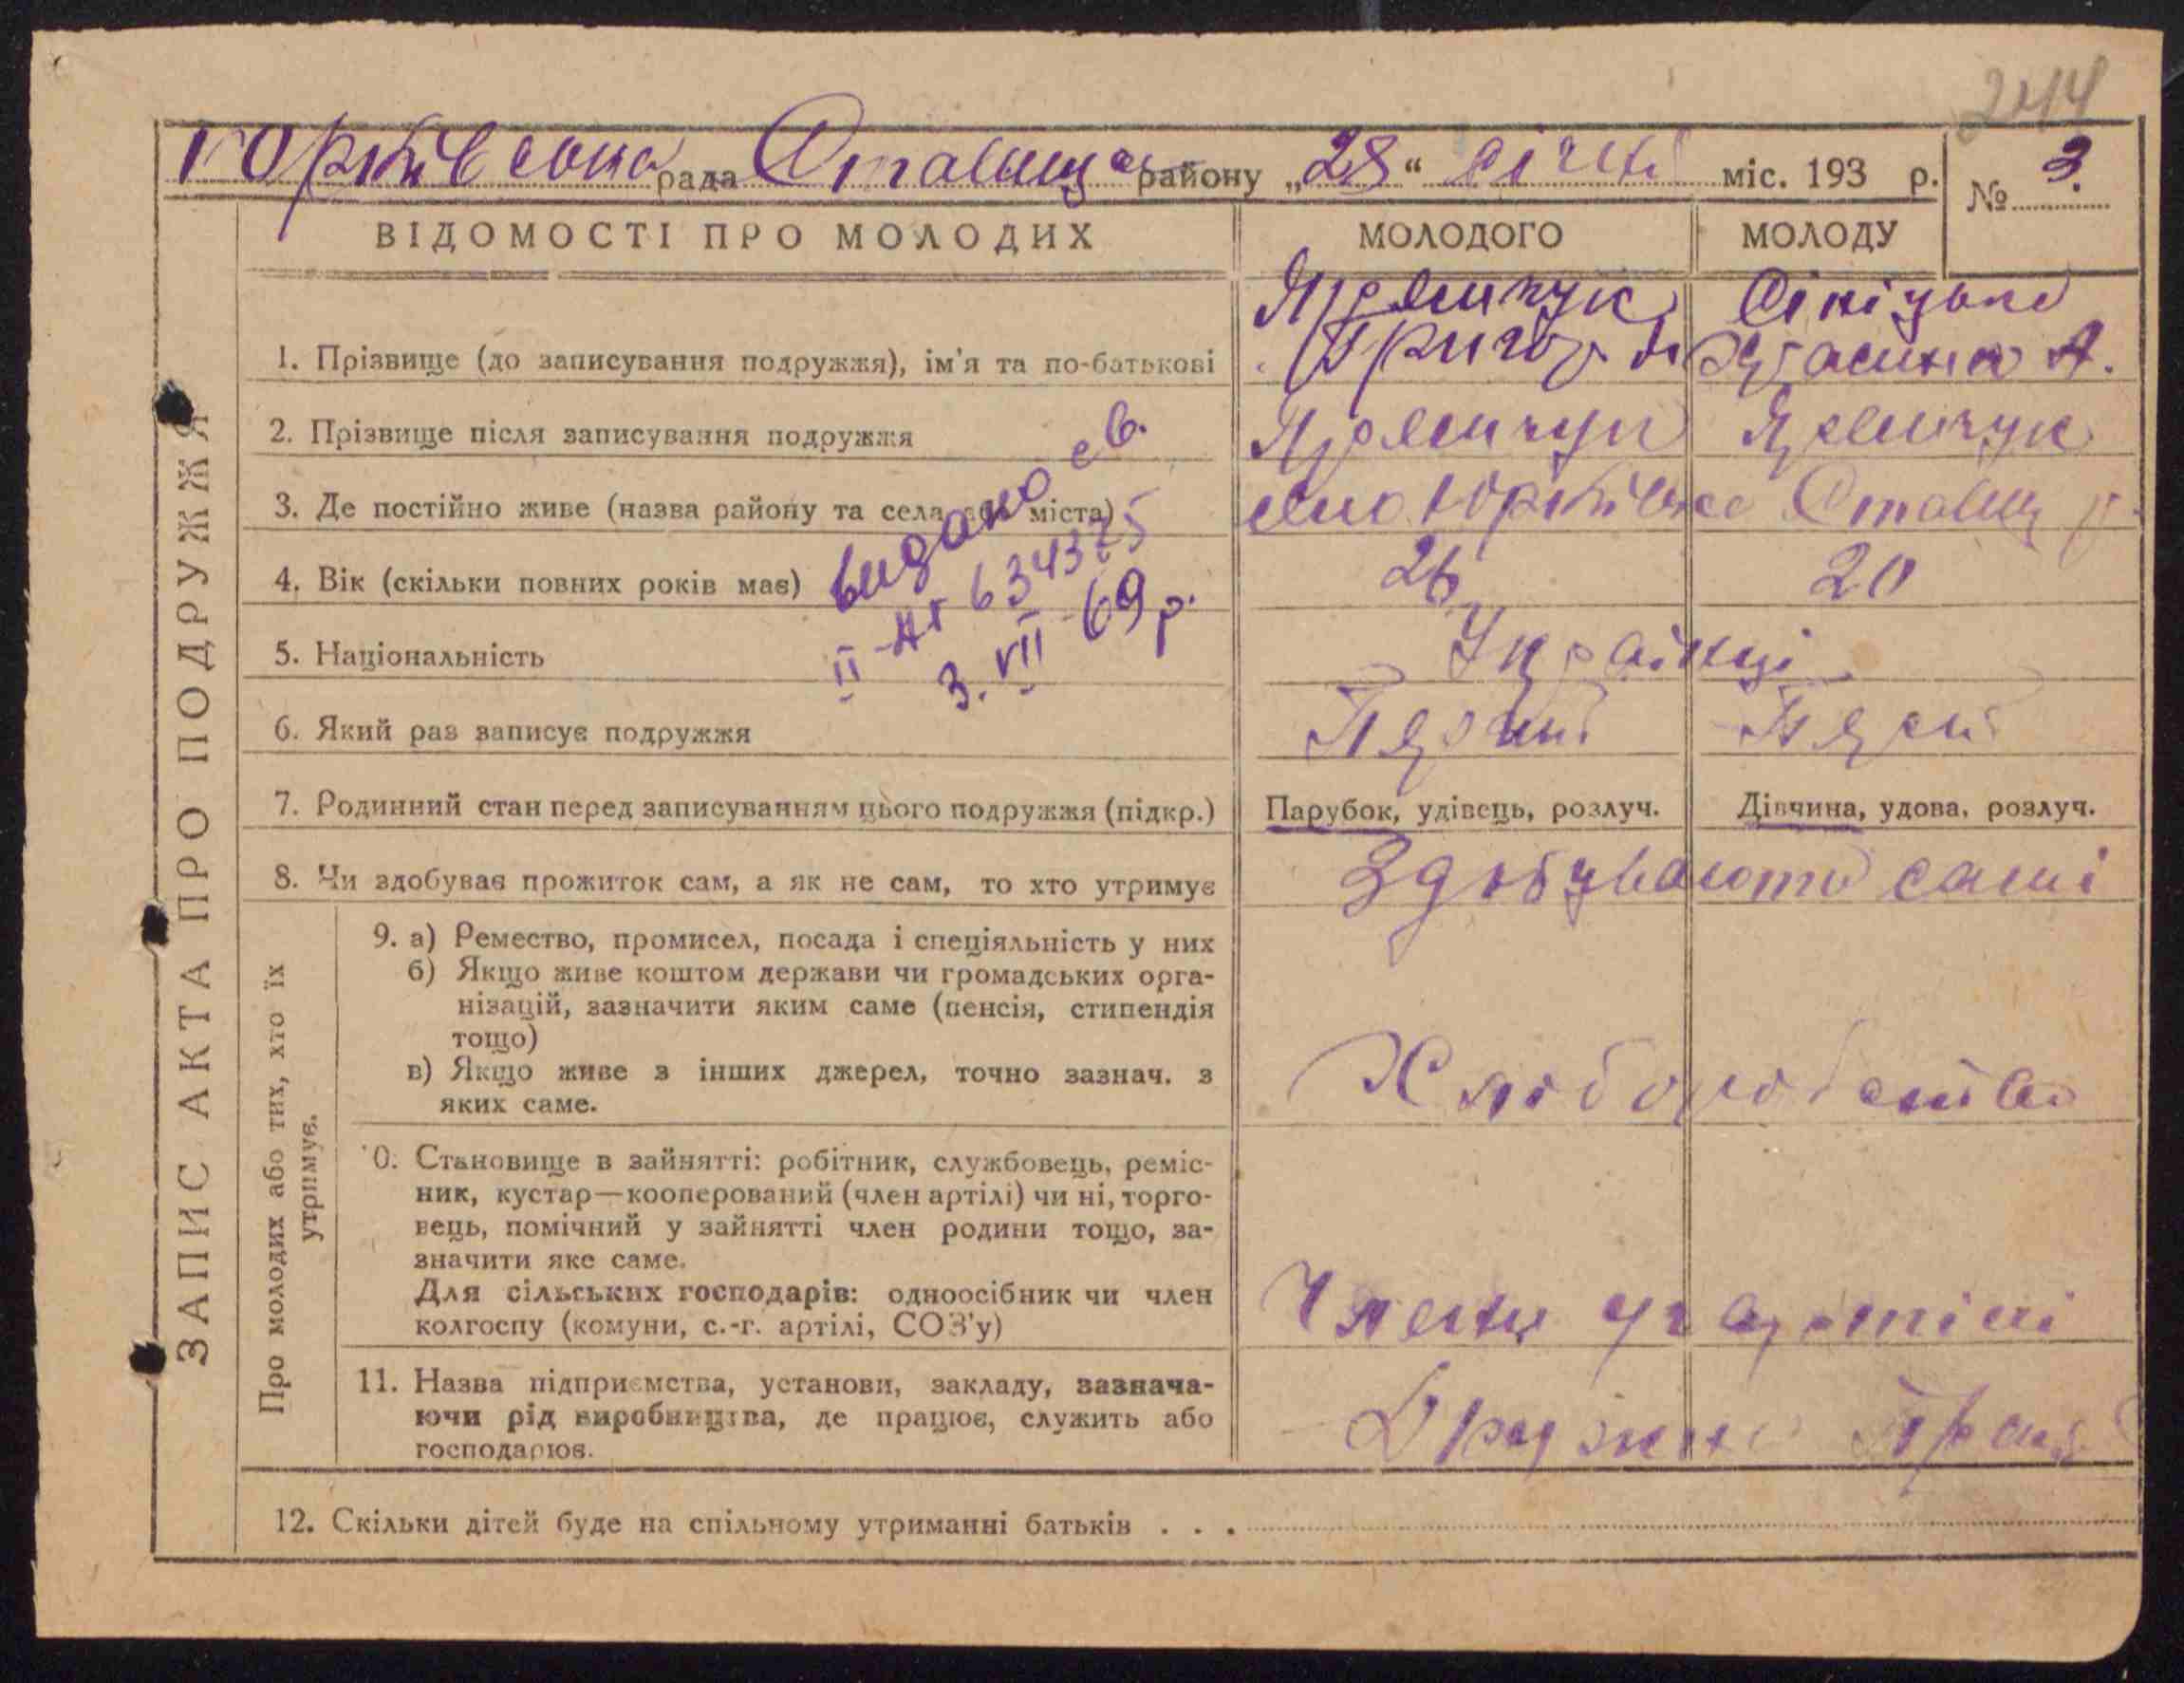 244
Юрківська рада Ставищ району „28“ січня міс. 193 р. № 3.
ВІДОМОСТІ ПРО МОЛОДИХ МОЛОДОГО МОЛОДУ
ЗАПИС АКТА ПРО ПОДРУЖЖЯ
Яремчук
1. Прізвище (до записування подружжя), ім'я та по-батькові Григор А.
2. Прізвище після записування подружжя Яремчук Яремчук
3. Де постійно живе (назва району та села або міста) село Юрківка Ставищ р.
4. Вік (скільки повних років має) 26 20
видано св.
ІІ-АГ 634375
3. VII-69 р.
5. Національність Українці
6. Який раз записує подружжя Перший
7. Родинний стан перед записуванням цього подружжя (підкр.) Парубок, удівець, розлуч. Дівчина, удова, розлуч.
8. Чи здобуває прожиток сам, а як не сам, то хто утримує Здобувають самі
Про молодих або тих, хто їх
утримує.
9. а) Ремество, промисел, посада і спеціяльність у них
б) Якщо живе коштом держави чи громадських орга-
нізацій, зазначити яким саме (пенсія, стипендія
тощо)
в) Якщо живе з інших джерел, точно зазнач. з
яких саме.
Хліборобство
0. Становище в зайнятті: робітник, службовець, реміс-
ник, кустар—кооперований (член артілі) чи ні, торго-
вець, помічний у зайнятті член родини тощо, за-
значити яке саме.
Для сільських господарів: одноосібник чи член
колгоспу (комуни, с.-г. артілі, СОЗ'у)
Члени артілі
11. Назва підприємства, установи, закладу, зазнача-
ючи рід виробництва, де працює, служить або
господарює.
Дружна Праця
12. Скільки дітей буде на спільному утриманні батьків . . .